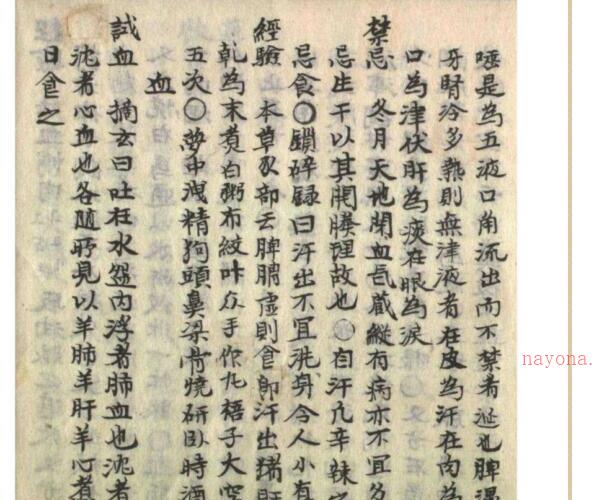 唾是為五液口角流出而不禁者涎也脾遇
牙腎冷多熱則無津液者在皮為汗在肉為
口為津伏肝為痰在眼為淚
禁忌 冬月天地閉血氣藏縱有病亦不宜多
忌生干以其開腠理故也〇自汗凡辛辣
忌食〇鎖碎録曰汗出不宜洗身令人小有
經驗 本草豕部云脾胃虛則食即汗出猪肝
乹為末煮白粥布紋叶众手作丸梧子大空
五次〇夢中洩精狗頭鼻梁骨燒研臥時酒
血
試血 摘玄曰吐在水盌內浮者肺血也沈者
沈者心血也各随所見以羊肺羊肝羊心煮
日食之
nayona.